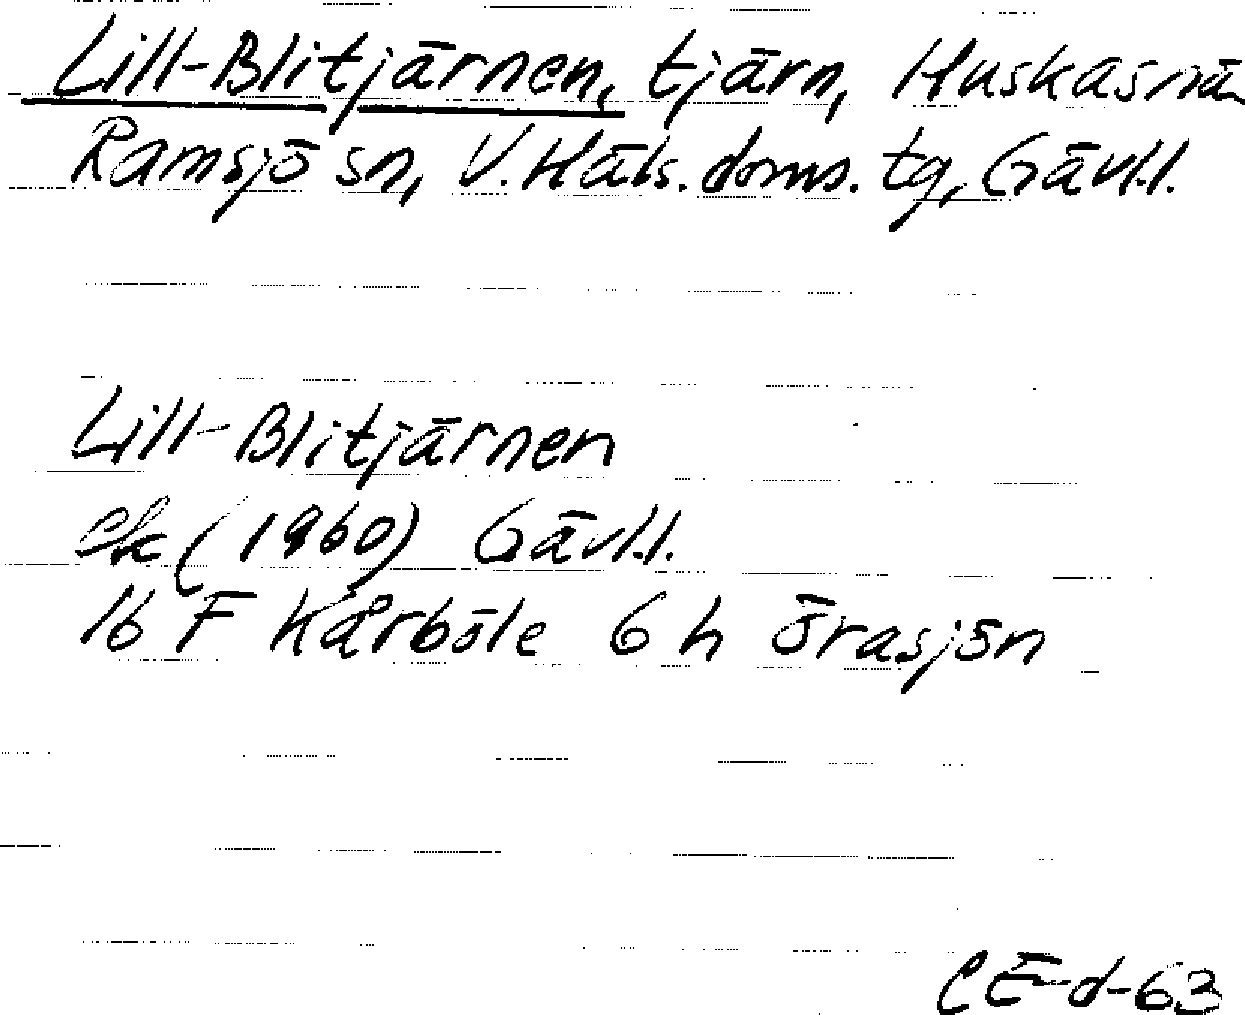 Lill-Blitjärnen, tjärn, Huskasnä
Ramsjö sn, V. Häls. doms. tg, Gävl.l.
Lill-Blitjärnen
ek (1960) Gävl.l.
16 F Kårböle 6 h Örasjön
CE-d-63